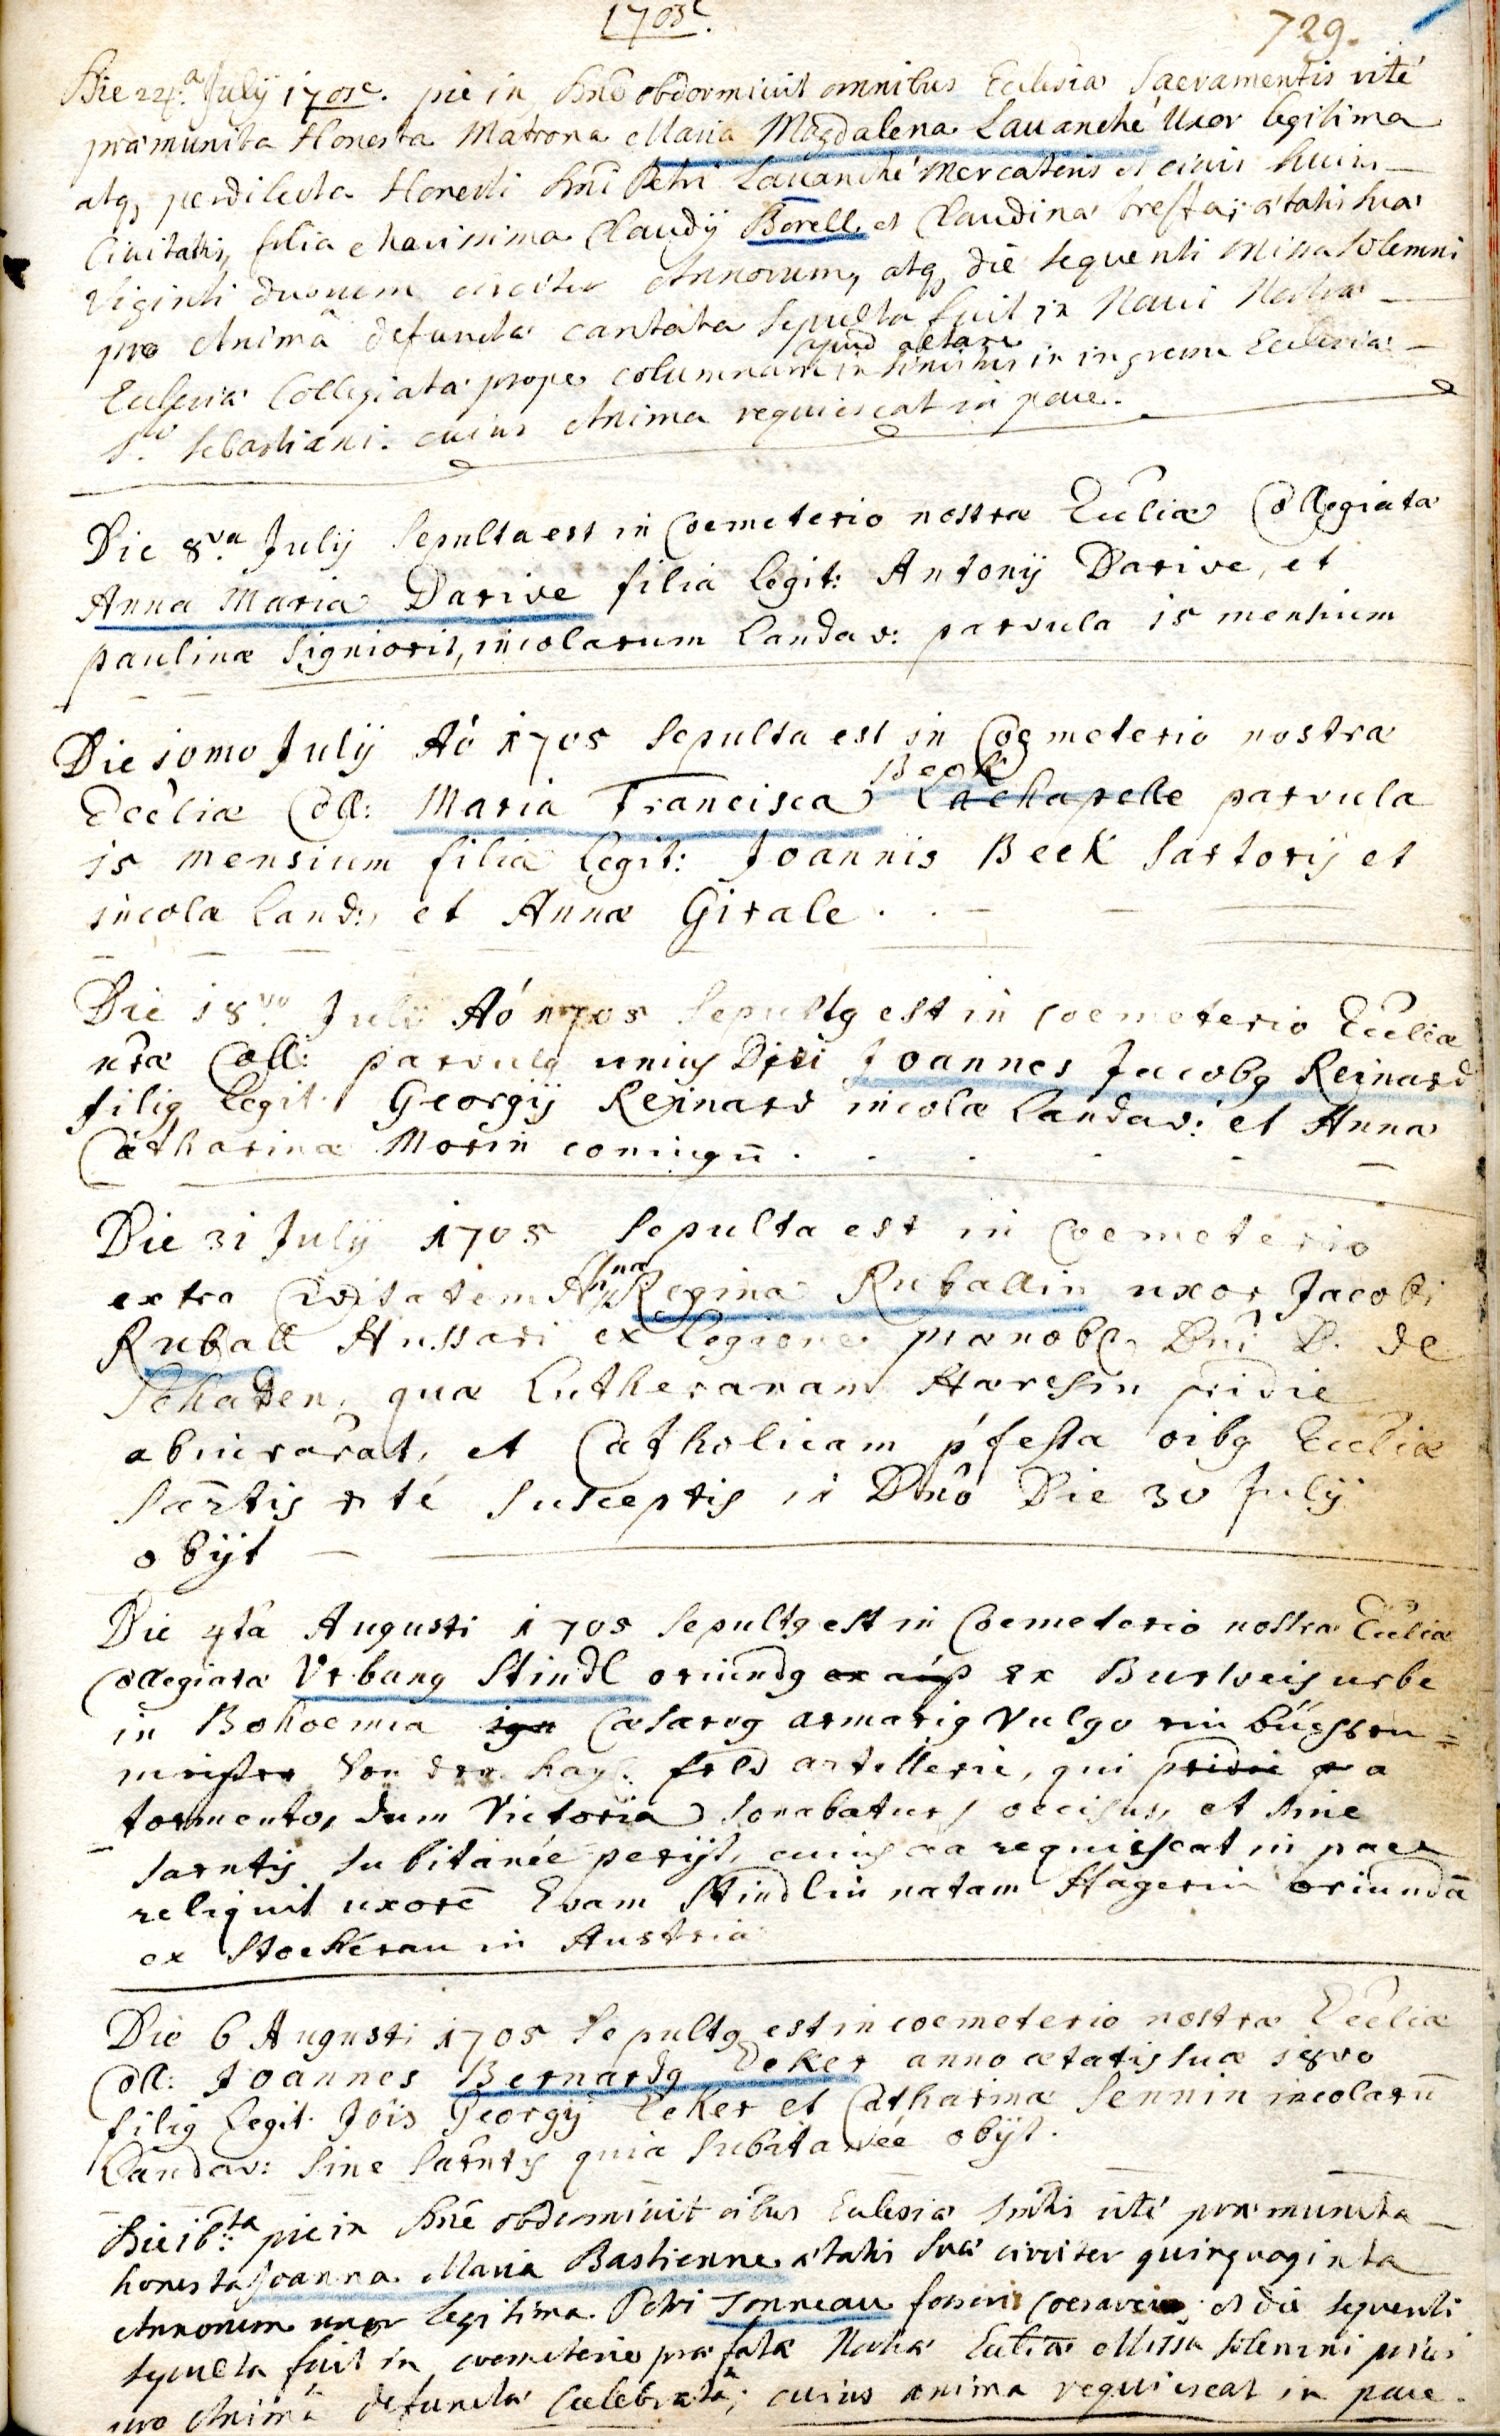 1705.
729.
Die 24.a July 1705. pie in Dno obdormivit omnibus Ecclesiæ Sacramentis rité
præmunita Honesta Matrona Maria Magdalena Lavanché Uxor legitima
atq, perdilecta Honesti Dni Petri Lavanché Mercatoris et civis huius
Civitatis, filia charissima Claudÿ Borell et Claudinæ ætatis suæ
viginti duorum circiter Annorum, atq, die sequenti Missa solemni
pro Animâ defunctæ cantata sepulta fuit in Navi Nostræ
Ecclesiæ Collegiatæ prope columnam in sinistris in ingressu Ecclesiæ
apud altare
Sti Sebastiani. cuius Anima requiescat in pace.
Die 8.va Julÿ Sepulta est in Coemeterio nostræ Eccliæ Collegiatæ
Anna Maria Darive filia legit: Antonÿ Darive, et
paulinæ Signiorit, incolarum Landav: parvula 15 mensium
Die 10mo Julÿ Aó 1705 Sepulta est in Coemeterio nostræ
Beck
Eccliæ Coll: Maria Francisca Lachapelle parvula
15 mensium filia legit: Joannis Beck Sartorÿ et
incolæ Land:, et Annæ Girale . . -
Die 18.vo Julÿ Aó 1705 Sepultg est in coemeterio Eccliæ
nræ Coll: parvulg unius Diei Joannes Jacobg Reinard
filig legit. Georgÿ Reinard incolæ Landav: et Annæ
Catharinæ Morin coniugū .
Die 31 Julÿ 1705 Sepulta est in Coemeterio
extra Civitatem Anna Regina Ruballin uxor Jacobi
Ruball Hussari ex legione prænobl, Dni D. de
Schaden, quæ Lutheranam Hæresin pridie
abiurârat, et Catholicam p'fessa oibg Eccliæ
Sacrtis rité Susceptis in Dno Die 30 Julÿ
obÿt
Die 4tâ Augusti 1705 Sepultg est in Coemeterio nostræ Eccliæ
Collegiatæ Urbang Stindl oriundg ex Burweis urbe
in Bohoemia Cæsareg armarig vulgo ein büchsen=
meister von der Kaÿ: feld artellerie, qui pridie a
tormento, dum Victoria sonabatur, occisus, et sine
sacrntis subitaneé perÿt, cuius aa requiescat in pace
reliquit uxorē Evam Stindlin natam Hagerin oriundā
ex Stockerau in Austria
Die 6 Augusti 1705 Sepultg est in coemeterio nostræ Eccliæ
Coll: Joannes Bernardg Eeker anno ætatis suæ 18vo
filig legit. Jois Georgÿ Eeker et Catharinæ Sennin incolarū
Landav: sine sacrntis quia subitaneé obÿt.
Die 16.ta pie in Dno obdormivit oibus Ecclesiæ Sacrtis rité præmunita
honesta Joanna Maria Bastienne ætatis suæ circiter quinquaginta
Annorum uxor legitima Petri Tonneau et die sequenti
sepulta fuit in coemeterio præfatæ Nostræ Eccliæ Missa solemni prius
pro Animâ defunctæ celebratâ; cuius anima requiescat in pace.